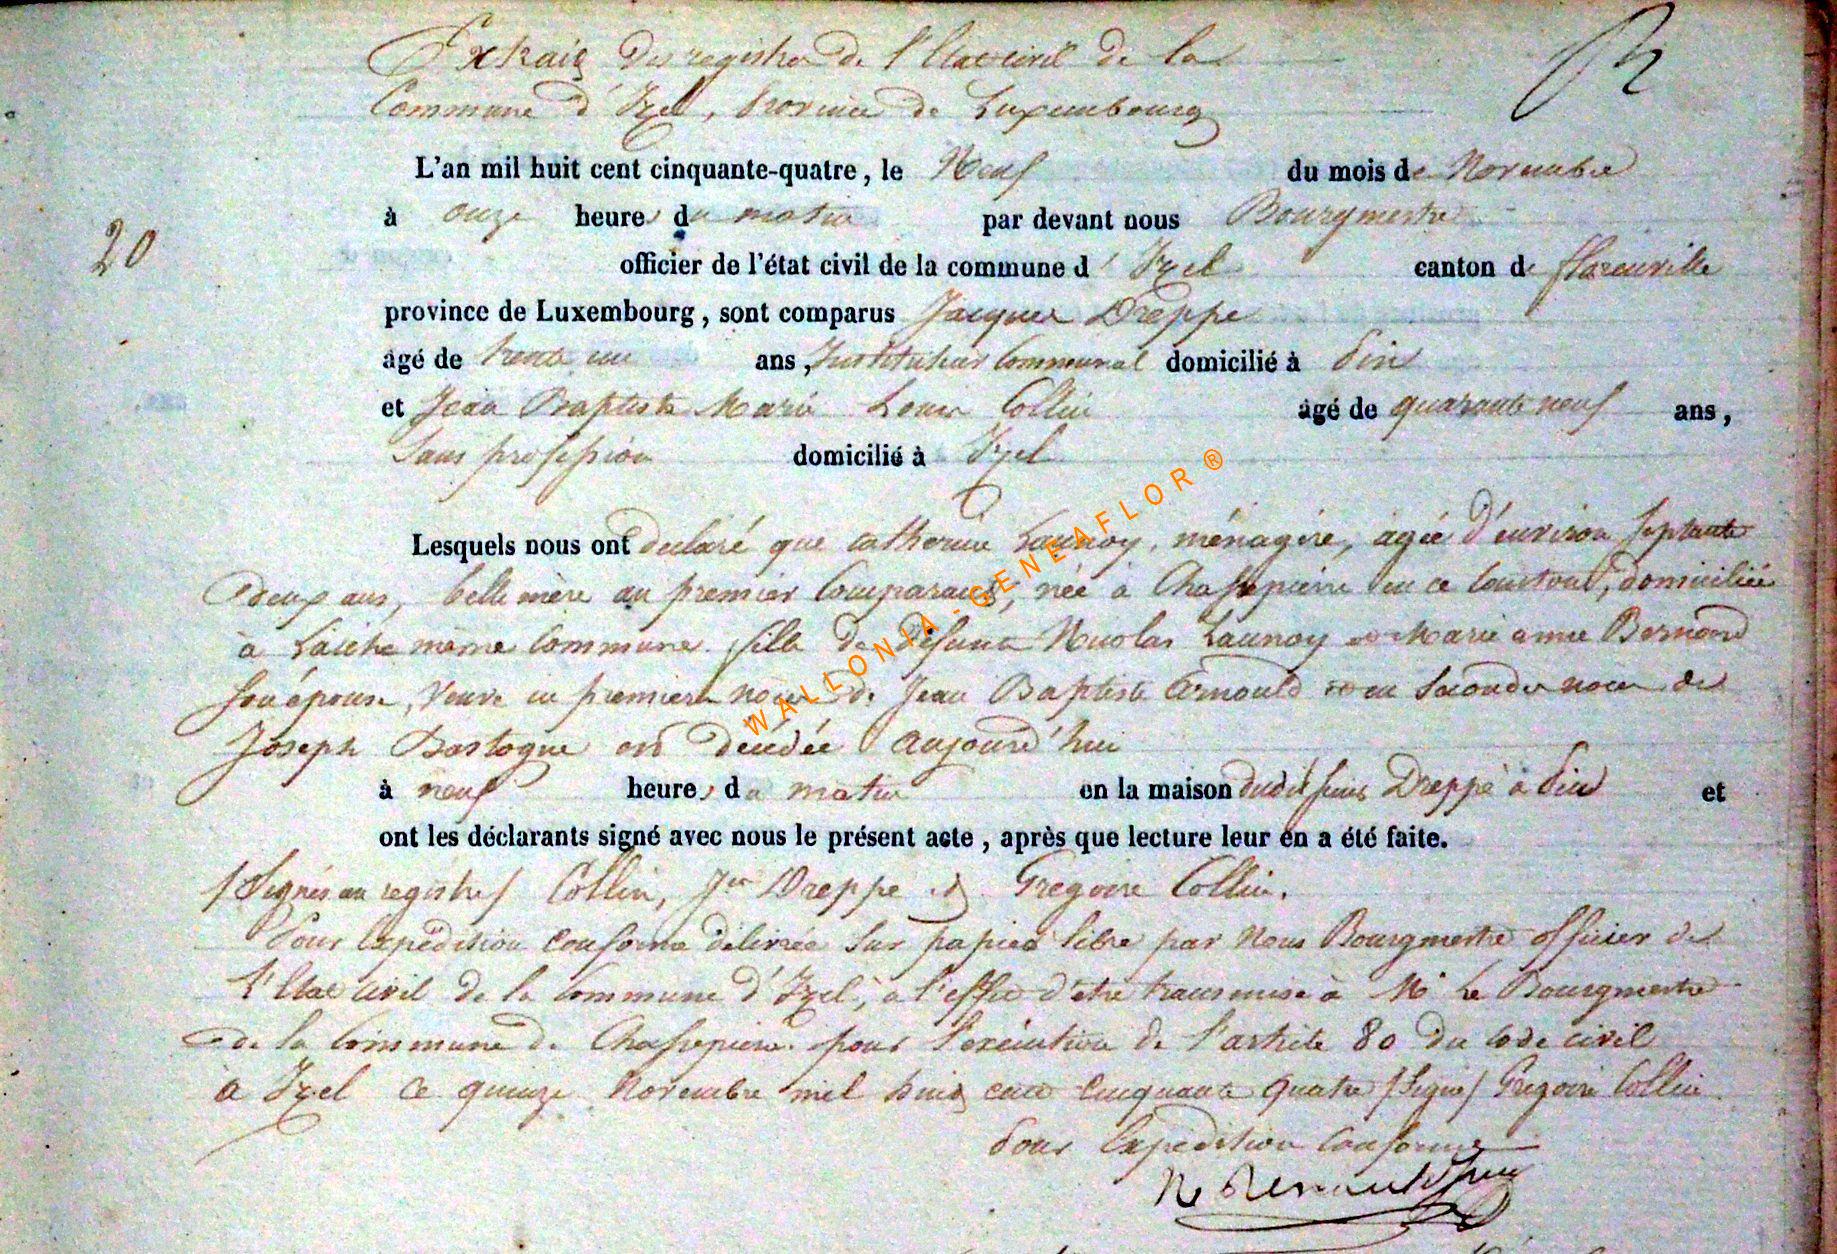 Extrait des registres de l'Etat civil de la
Commune d'Izel, Province de Luxembourg
L'an mil huit cent cinquante-quatre, le Neuf du mois de Novembre
à onze heures du matin par devant nous Bourgmestre
20
officier de l'état civil de la commune d'Izel canton de florenville
province de Luxembourg, sont comparus Jacques Dreppe
âgé de trente un ans, Instituteur Communal domicilié à Pin
et Jean Baptiste Marie Louis Collin âgé de quarante neuf ans,
Sans profession domicilié à Izel
Lesquels nous ont declaré que catherine Launoy, ménagère, agée d'environ septante
deux ans, belle mère au premier Comparant, née à Chassepierre en ce Canton, domiciliée
à Laiche même Commune. fille de défunts Nicolas Launoy et Marie anne Bernard
son épouse, Veuve en premieres noces de Jean Baptiste Arnould et en Secondes noces de
Joseph Bastogne est decedée aujourd'hui
à neuf heures du matin en la maison dudit sieur Dreppe à Pin et
ont les déclarants signé avec nous le présent acte, après que lecture leur en a été faite.
/Signés au registre/ Collin, Jes Dreppe et Gregoire Collin.
Pour Expédition conforme délivrée sur papier libre par Nous Bourgmestre officier de
l'Etat civil de la Commune d'Izel, à l'effet d'être transmise à Mr Le Bourgmestre
de la Commune de Chassepierre pour l'exécution de l'article 80 du code civil
à Izel ce quinze Novembre mil huit cent cinquante quatre /Signé/ Gregoire Collin
Pour Expédition Conforme
WALLONIA-GENEAFLOR ®